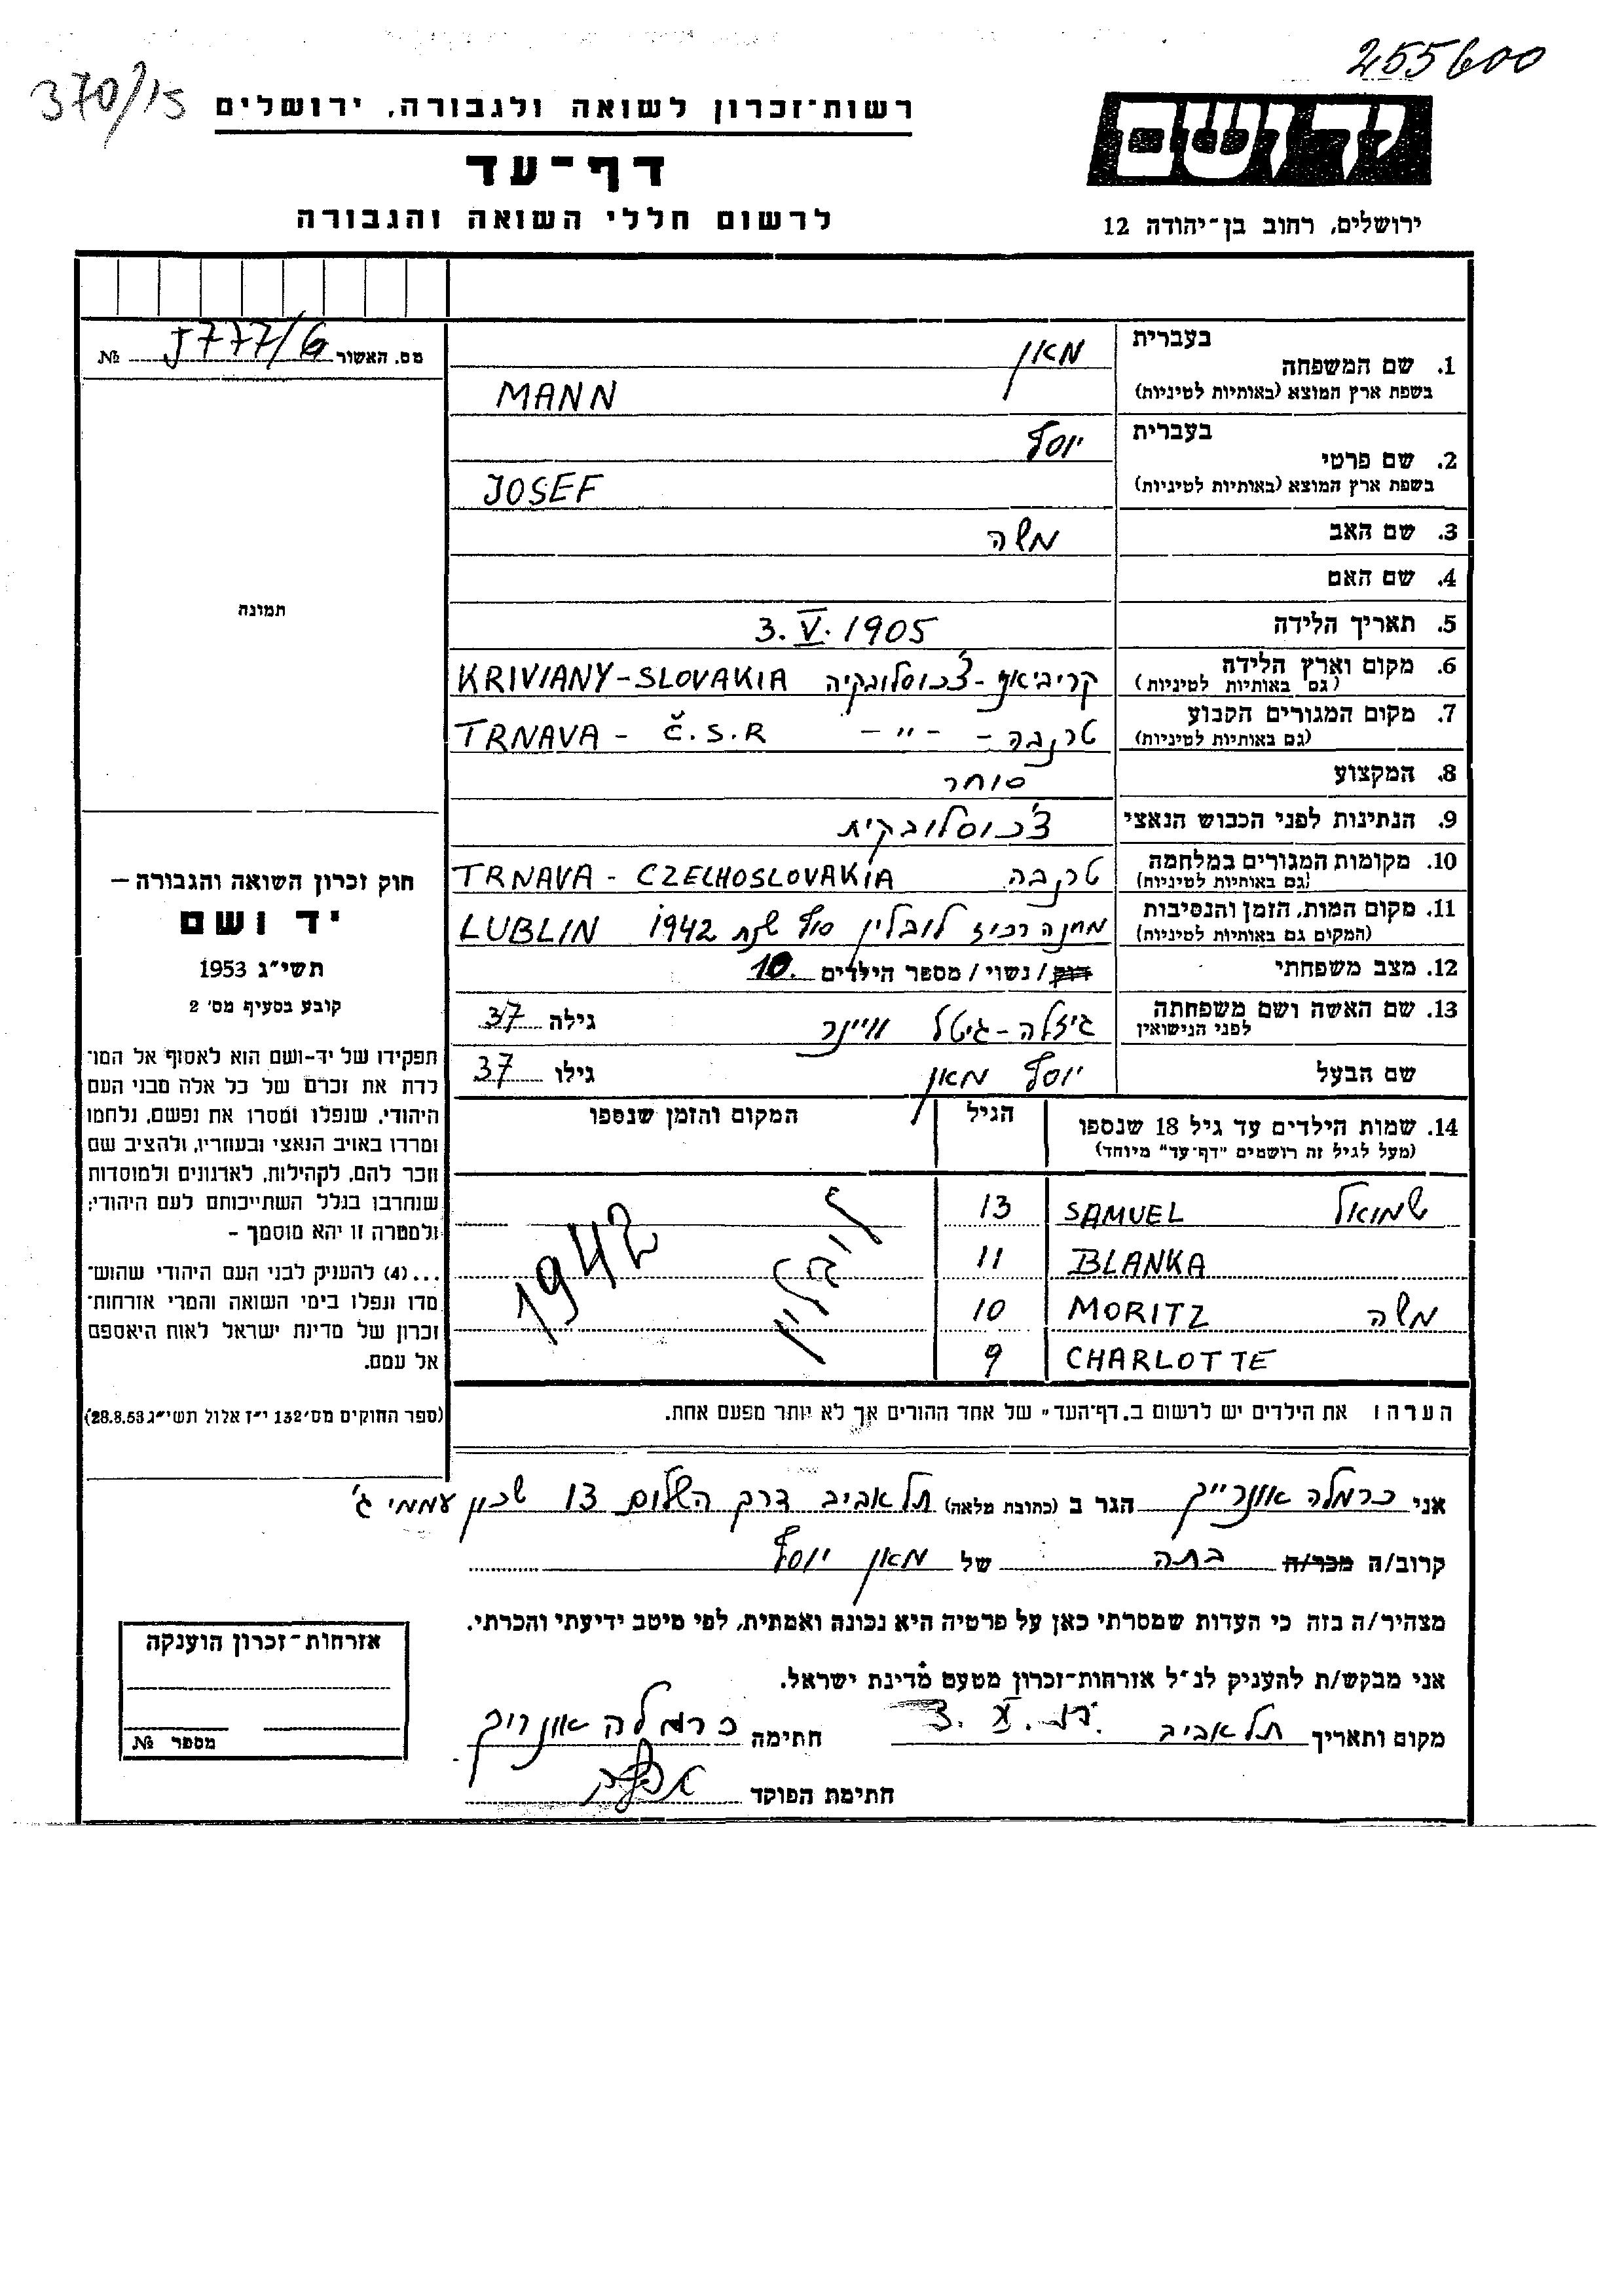 255600
370/15
רשות־זכרון לשואה ולגבורה, ירושלים
דף־עד
לרשום חללי השואה והגבורה
יד ושם
ירושלים, רחוב בן־יהודה 12
מס. האשור J777/6 №
תמונה
בעברית מאן
1. שם המשפחה
בשפת ארץ המוצא (באותיות לטיניות) MANN
בעברית יוסף
2. שם פרטי
בשפת ארץ המוצא (באותיות לטיניות) JOSEF
3. שם האב משה
4. שם האם
5. תאריך הלידה 3. V. 1905
6. מקום וארץ הלידה (גם באותיות לטיניות) קריביאני - צ'כוסלובקיה KRIVIANY - SLOVAKIA
7. מקום המגורים הקבוע (גם באותיות לטיניות) טרנבה - - " - TRNAVA - Č.S.R
8. המקצוע סוחר
9. הנתינות לפני הכבוש הנאצי צ'כוסלובקית
10. מקומות המגורים במלחמה (גם באותיות לטיניות) טרנבה TRNAVA - CZELHOSLOVAKIA
11. מקום המות, הזמן והנסיבות (המקום גם באותיות לטיניות) מחנה רכוז לובלין סוף שנת 1942 LUBLIN
12. מצב משפחתי רווק / נשוי / מספר הילדים 10.
13. שם האשה ושם משפחתה לפני הנישואין גיזלה - גיטל ויינר גילה 37
שם הבעל יוסף מאן גילו 37
14. שמות הילדים עד גיל 18 שנספו הגיל המקום והזמן שנספו
(מעל לגיל זה רושמים "דף־עד" מיוחד)
שמואל SAMUEL 13
BLANKA 11
משה MORITZ 10
CHARLOTTE 9
לובלין 1942
הערה: את הילדים יש לרשום ב„דף־העד" של אחד ההורים אך לא יותר מפעם אחת.
חוק זכרון השואה והגבורה —
יד ושם
תשי"ג 1953
קובע בסעיף מס' 2
תפקידו של יד־ושם הוא לאסוף אל המו־
לדת את זכרם של כל אלה מבני העם
היהודי, שנפלו ומסרו את נפשם, נלחמו
ומרדו באויב הנאצי ובעוזריו, ולהציב שם
וזכר להם, לקהילות, לארגונים ולמוסדות
שנחרבו בגלל השתייכותם לעם היהודי;
ולמטרה זו יהא מוסמך –
...(4) להעניק לבני העם היהודי שהוש־
מדו ונפלו בימי השואה והמרי אזרחות־
זכרון של מדינת ישראל לאות היאספם
אל עמם.
(ספר החוקים מס' 132 י"ז אלול תשי"ג 28.8.53)
אני כרמלה אונרייך הגר ב (כתובת מלאה) תל אביב דרך השלום 13 שכון עממי ג'
קרוב/ה מכר/ה בתה של מאן יוסף
מצהיר/ה בזה כי העדות שמסרתי כאן על פרטיה היא נכונה ואמתית, לפי מיטב ידיעתי והכרתי.
אני מבקש/ת להעניק לנ"ל אזרחות־זכרון מטעם מדינת ישראל.
מקום ותאריך תל אביב חתימה כרמלה אונריך
חתימת הפוקד
אזרחות־זכרון הוענקה
מספר №